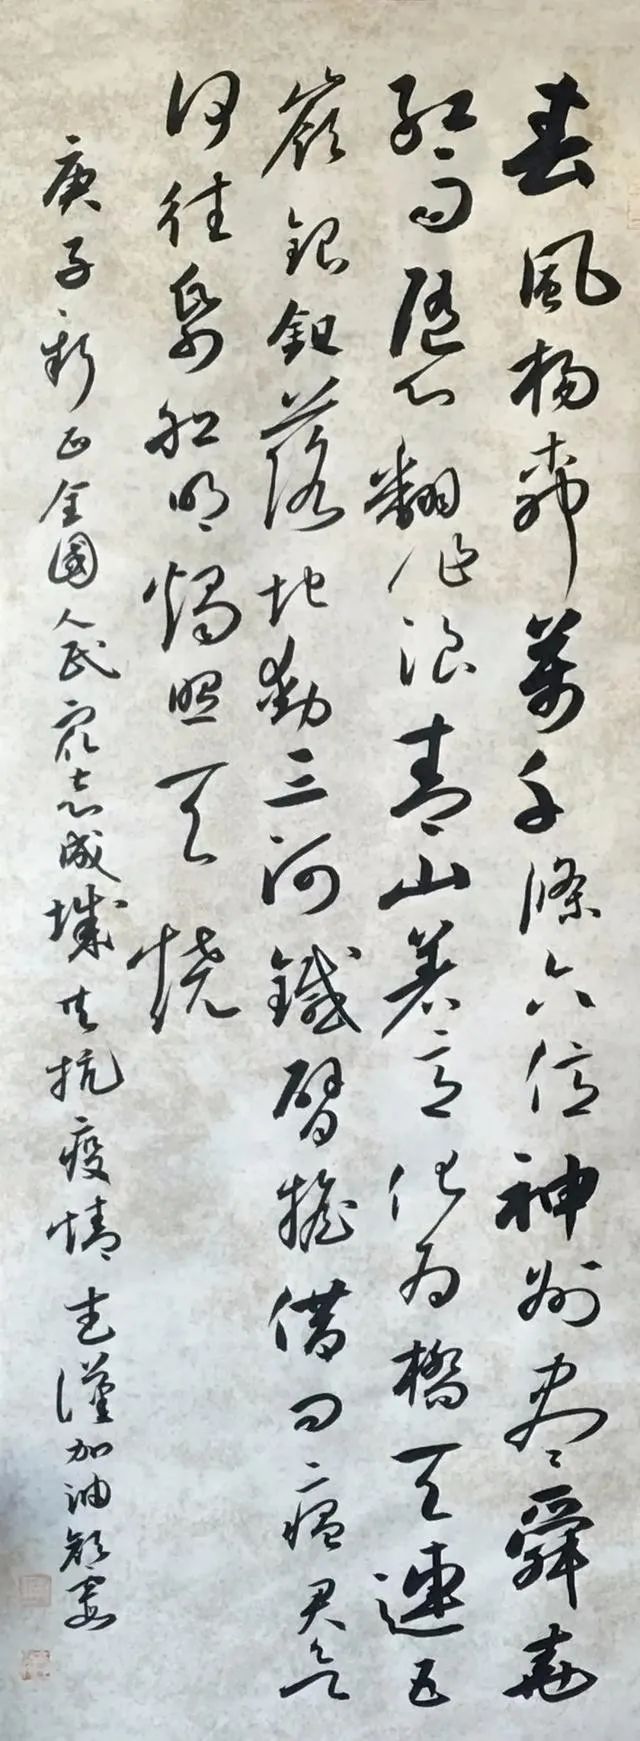 春風楊柳萬千條六億神州盡舜堯
紅雨隨心翻作浪青山着意化為橋天連五
嶺銀鋤落地動三河鐵臂搖借問瘟君欲
何往紙船明燭照天燒
庚子新正全國人民眾志成城共抗疫情武漢加油